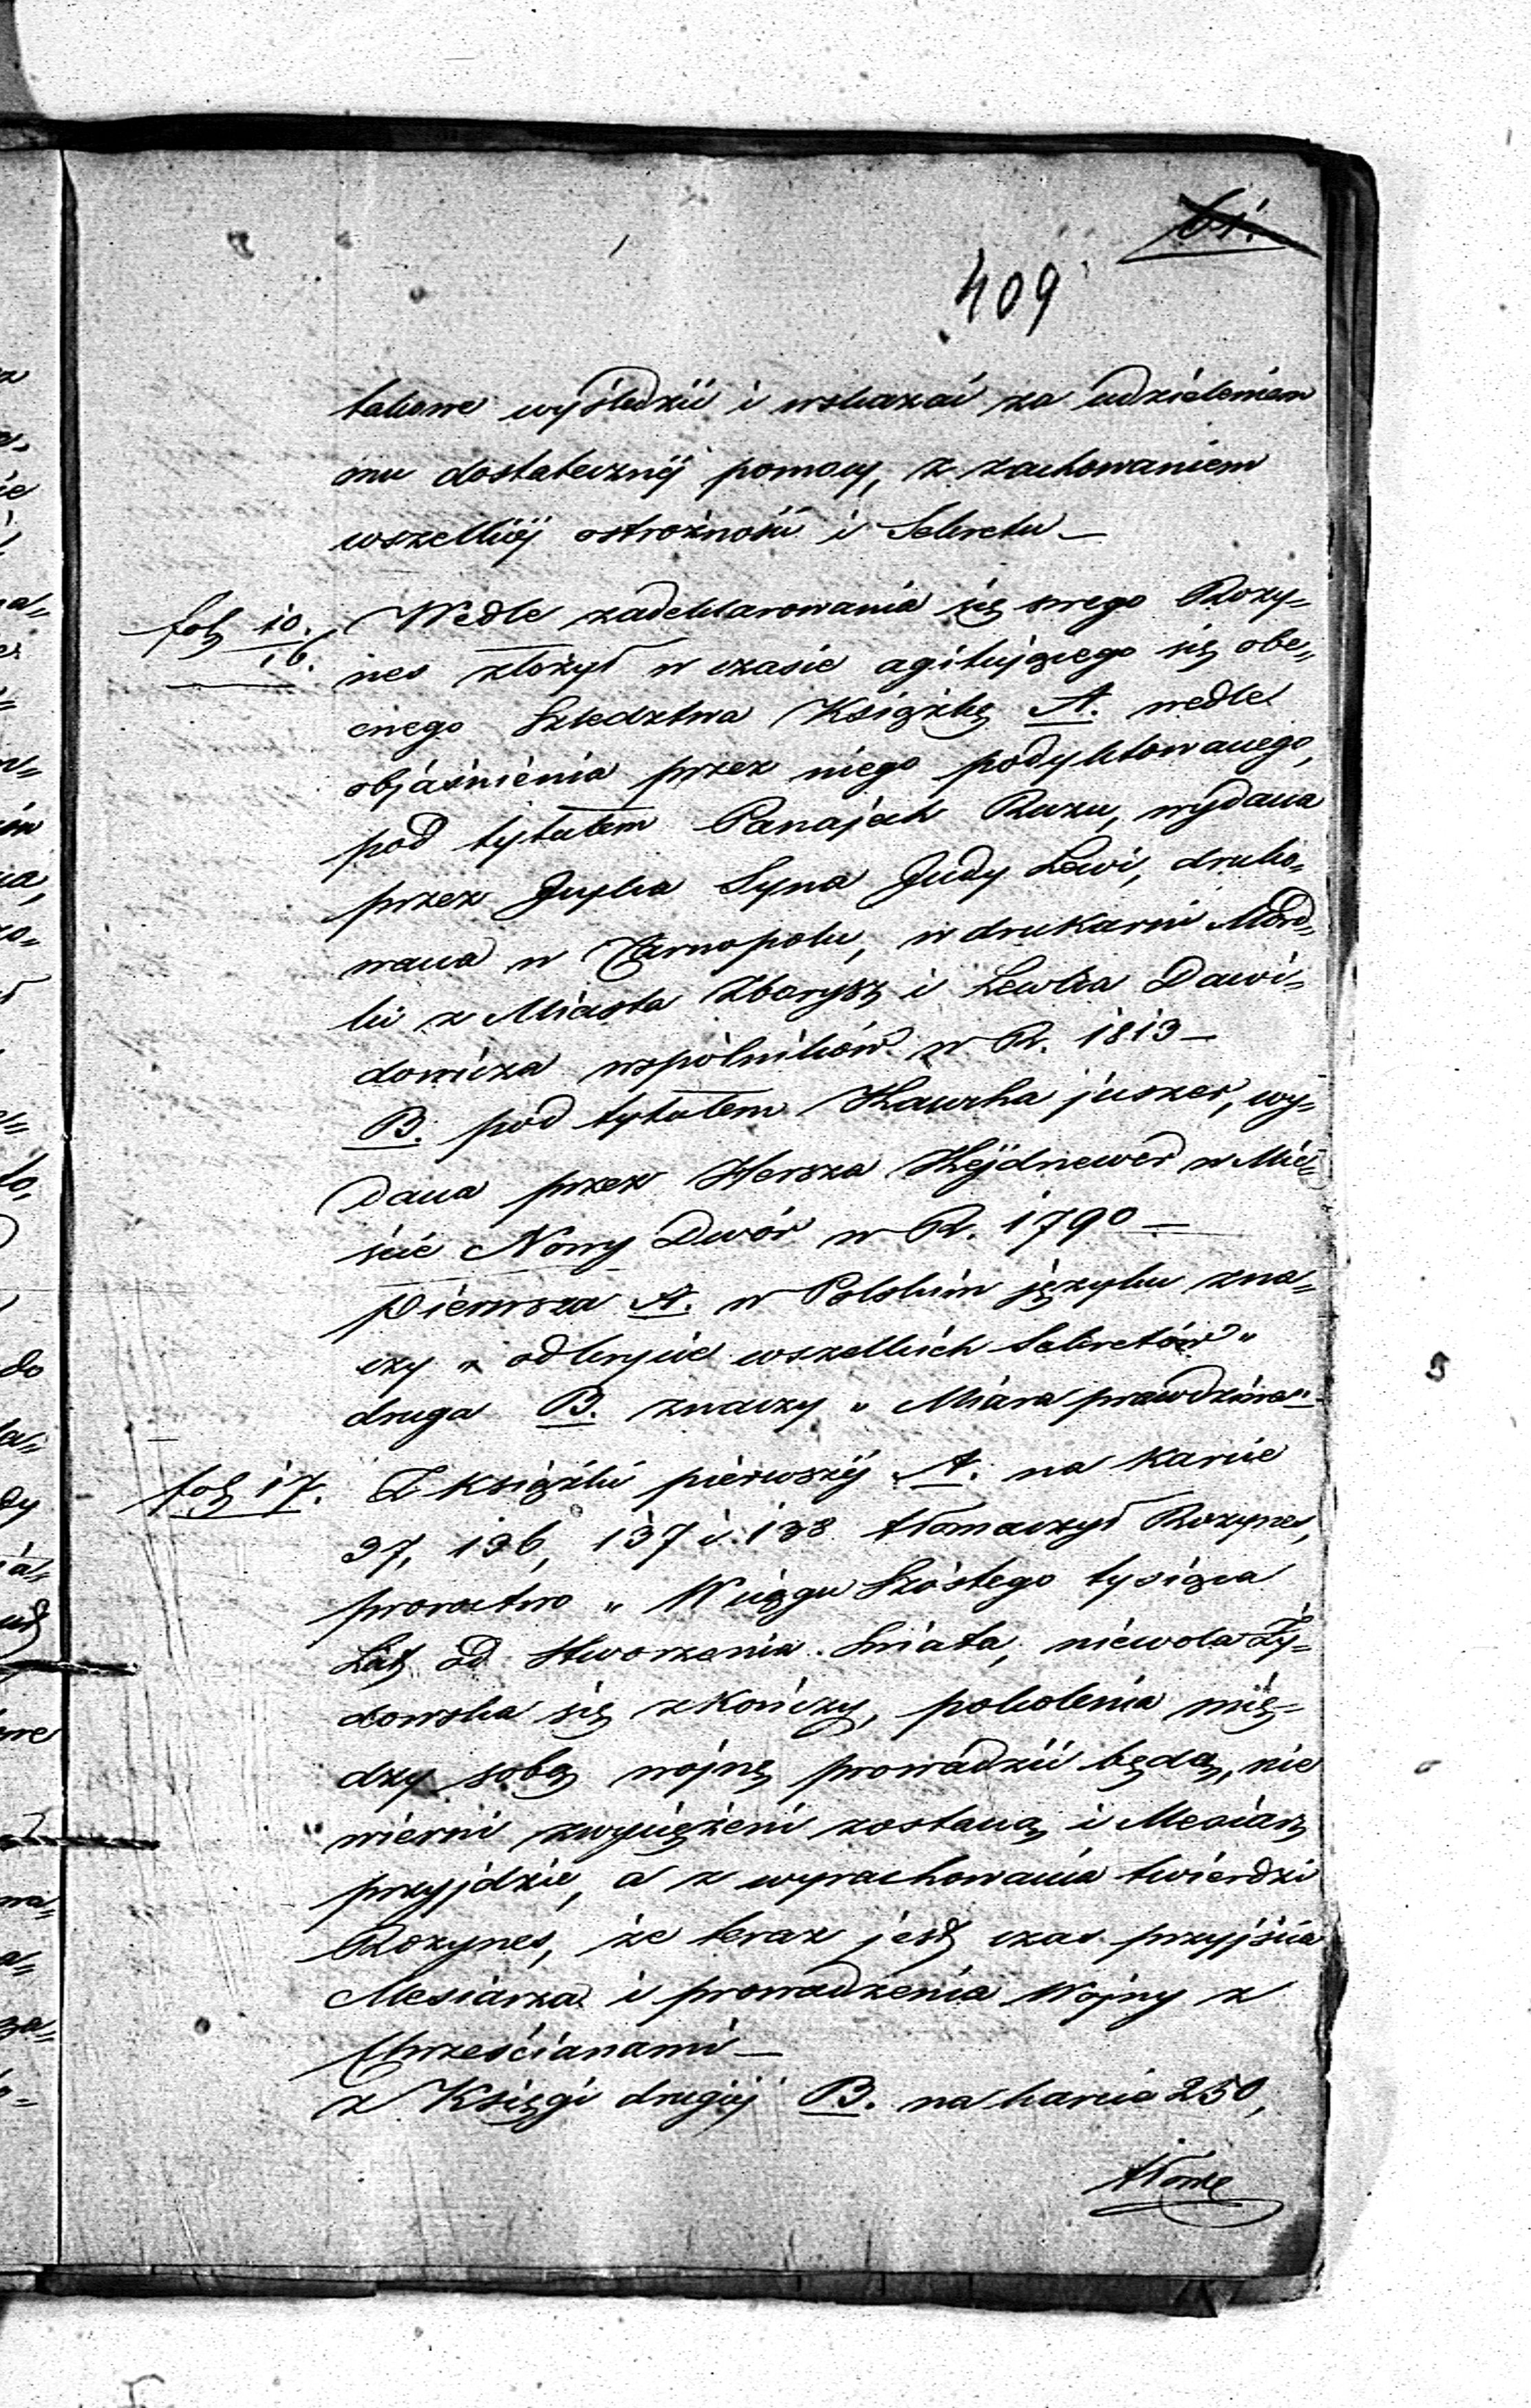 61.
409
takowe wyśledzić i wskazać za udzieleniem
mu dostatecznéj pomocy, z zachowaniem
wszelkiéj ostrożności i Sekretu —
fol. 10. 16. Wedle zadeklarowania się swego Rozy=
nes złożył w czasie agitującego się obe=
cnego Szledztwa Książkę A. wedle
objaśnienia przez niego podyktowanego,
pod tytułem Panajech Ruzu, wydana
przez Jupka Syna Judy Lewi, druko=
wana w Tarnopolu, w drukarni Mord=
ki z Miasta Zbarysz i Lewka Dawi=
dowicza wspólników w R. 1813 —
B. pod tytułem Kawcha juszer, wy=
dana przez Hersza Kejdnewer w Mie=
ście Nowy Dwór w R. 1790 —
Pierwsza A. w Polskim języku zna=
czy „odkrycie wszelkich Sekretów"
druga B. znaczy „Miara prawdziwa" —
fol. 17. Z książki pierwszéj A. na karcie
37, 136, 137 i 138 tłomaczył Rozynes,
proroctwo „W ciągu Szóstego tysiąca
Lat od Stworzenia Swiata, niewola Ży=
dowska się zkończy, pokolenia mię=
dzy sobą wojnę prowadzić będą, nie
wierni zwyciężeni zostaną i Mesiasz
przyjdzie, a z wyrachowania twierdzi
Rozynes, że teraz jest czas przyjścia
Mesiarza i prowadzenia Wojny z
Chrześcianami —
z Księgi drugiéj B. na karcie 250,